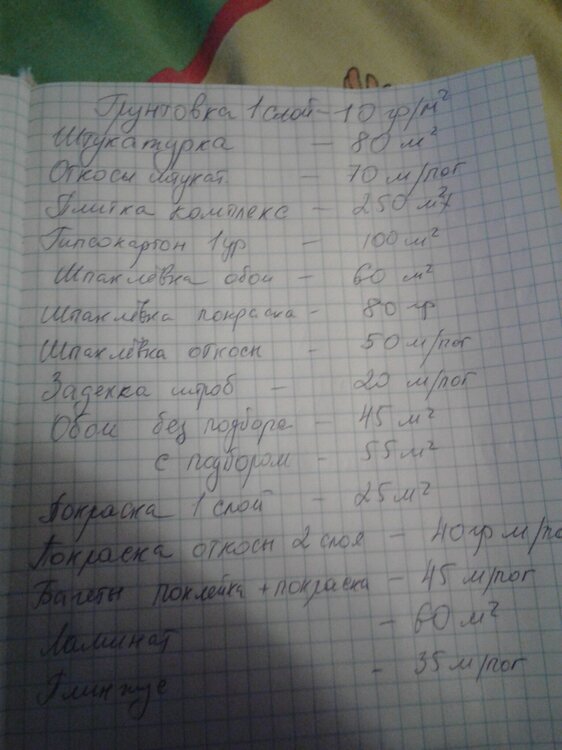 Грунтовка 1 слой - 10 гр/м²
Штукатурка - 80 м²
Откосы штукат. - 70 м/пог
Плитка комплекс - 250 м²
Гипсокартон 1 ур - 100 м²
Шпаклёвка обои - 60 м²
Шпаклёвка покраска - 80 гр
Шпаклёвка откосы - 50 м/пог
Заделка штроб - 20 м/пог
Обои без подбора - 45 м²
с подбором - 55 м²
Покраска 1 слой - 25 м²
Покраска откосы 2 слоя - 40 гр м/по
Багеты поклейка + покраска - 45 м/пог
Ламинат - 60 м²
Плинтус - 35 м/пог